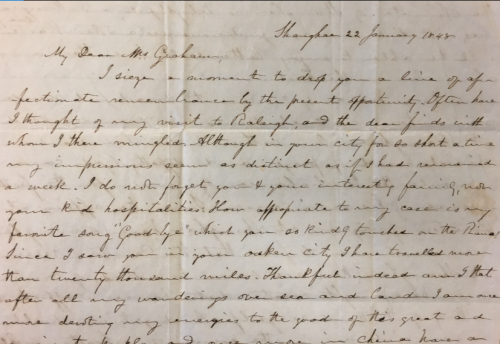 Shanghae 22 January 1848
My Dear Mrs Graham,
I sieze a moment to drop you a line of af-
fectionate remembrance by the present oppotunity. Often have
I thought of my visit to Raleigh, and the dear finds with
whom I there mingled. Although in your city for so short a time
my impressions seem as distinct as if I had remained
a week. I do not forget you & your interesting family, nor
your kind hospitalities. How appropiate to my case is my
favorite song "Good bye" which you so kindly touched on the Piano
Since I saw you in your oaken city I have traveled more
than twenty thousand miles. Thankful indeed am I that
after all my wanderings over sea and land I am once
more devoting my energies to the good of this great and
and once more in China have a